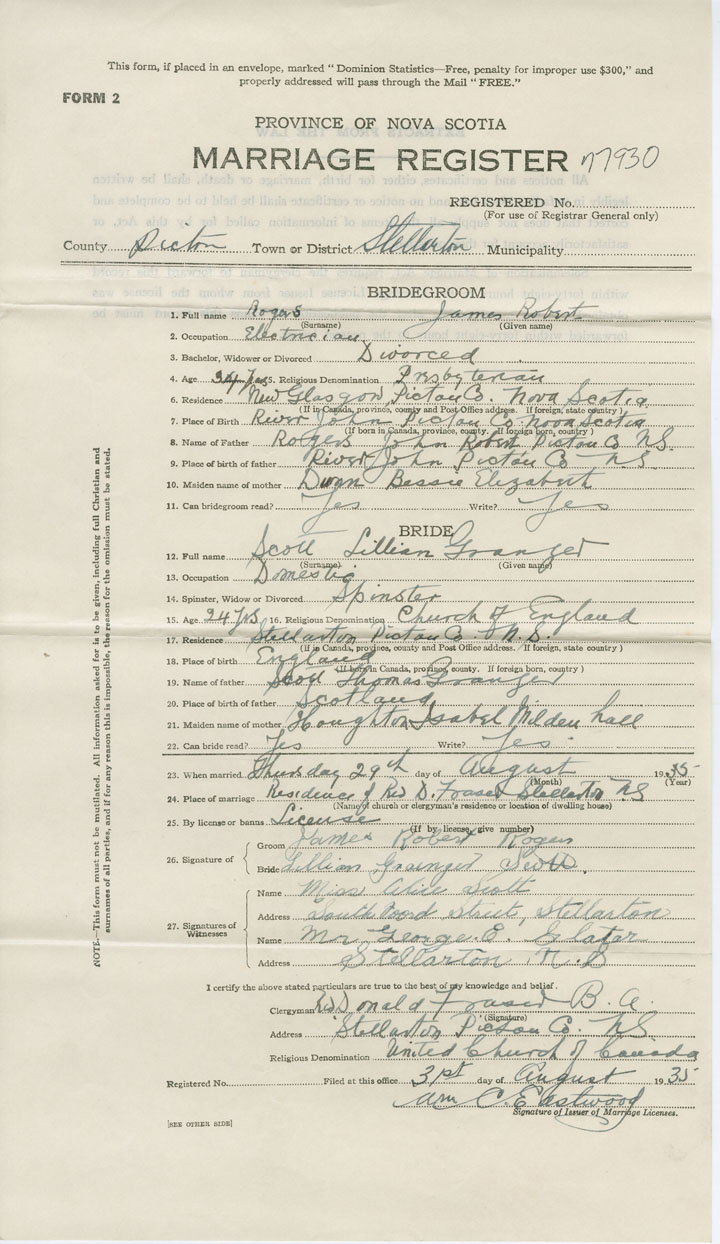 This form, if placed in an envelope, marked " Dominion Statistics—Free, penalty for improper use $300," and
properly addressed will pass through the Mail " FREE."
FORM 2
PROVINCE OF NOVA SCOTIA
MARRIAGE REGISTER 7930
REGISTERED No.
(For use of Registrar General only)
County Pictou Town or District Stellarton Municipality
BRIDEGROOM
1. Full name Rogers James Robert
(Surname) (Given name)
2. Occupation Electrician
3. Bachelor, Widower or Divorced Divorced
4. Age 34 yrs 5. Religious Denomination Presbyterian
6. Residence New Glasgow, Pictou Co. Nova Scotia
(If in Canada, province, county and Post Office address. If foreign, state country )
7. Place of Birth River John Pictou Co Nova Scotia
(If born in Canada, province, county. If foreign born, country )
8. Name of Father Rogers John Robert Pictou Co N.S.
9. Place of birth of father River John Pictou Co N S
10. Maiden name of mother Dunn Bessie Elizabeth
11. Can bridegroom read? Yes Write? Yes
BRIDE
12. Full name Scott Lillian Granger
(Surname) (Given name)
13. Occupation Domestic
14. Spinster, Widow or Divorced Spinster
15. Age 24 yrs 16. Religious Denomination Church of England
17. Residence Stellarton Pictou Co. N.S.
(If in Canada, province, county and Post Office address. If foreign, state country )
18. Place of birth England
(If born in Canada, province, county. If foreign born, country )
19. Name of father Scott Thomas Granger
20. Place of birth of father Scotland
21. Maiden name of mother Houghton Isabel Milden hall
22. Can bride read? Yes Write? Yes
23. When married Thursday 29th day of August 1935
(Month) (Year)
24. Place of marriage Residence of Rev D. Fraser Stellarton NS
(Name of church or clergyman's residence or location of dwelling house)
25. By license or banns License
(If by license, give number)
26. Signature of
Groom James Robert Rogers
Bride Lillian Grainger Scott
27. Signatures of Witnesses
Name Miss Alice Scott
Address South Foord Street, Stellarton
Name Mr. George E.
Address Stellarton N.S
I certify the above stated particulars are true to the best of my knowledge and belief.
Clergyman Rev Donald Fraser B.A.
(Signature)
Address Stellarton Pictou Co. N.S.
Religious Denomination United Church of Canada
Registered No. Filed at this office 31st day of August 1935
Wm C. Eastwood
Signature of Issuer of Marriage Licenses.
[SEE OTHER SIDE]
NOTE.—This form must not be mutilated. All information asked for is to be given, including full Christian and
surnames of all parties, and if for any reason this is impossible, the reason for the omission must be stated.